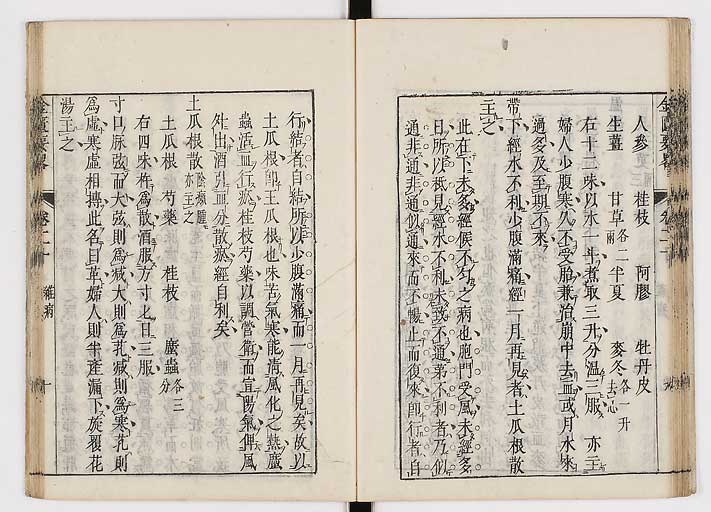 人參 桂枝 阿膠 牡丹皮
生薑 甘草各二兩 半夏 麥冬各一升去心
右十二味以水一斗煮取三升分溫三服 亦主
婦人少腹寒久不受胎兼治崩中去血或月水來
過多及至期不來
帶下經水不利少腹滿痛經一月再見者土瓜根散
主之
此在下未多經候不勻之病也胞門受風未經多
日所以秪見經水不利未致不通第不利者乃似
通非通非通似通來而不暢止而復來卽行者自
金匱要略 卷二十
行結者自結所以少腹滿痛而一月再見矣故以
土瓜根卽王瓜根也味苦氣寒能淸風化之熱䗪
蟲活血行瘀桂枝芍藥以調營衛而宣陽氣俾風
外出酒引血分散瘀經自利矣
土瓜根散陰㿗腫亦主之
土瓜根 芍藥 桂枝 䗪蟲各三分
右四味杵爲散酒服方寸匕日三服
寸口脉弦而大弦則爲減大則爲芤減則爲寒芤則
爲虛寒虛相搏此名曰革婦人則半產漏下旋覆花
湯主之
金匱要略 卷二十 雜病 十